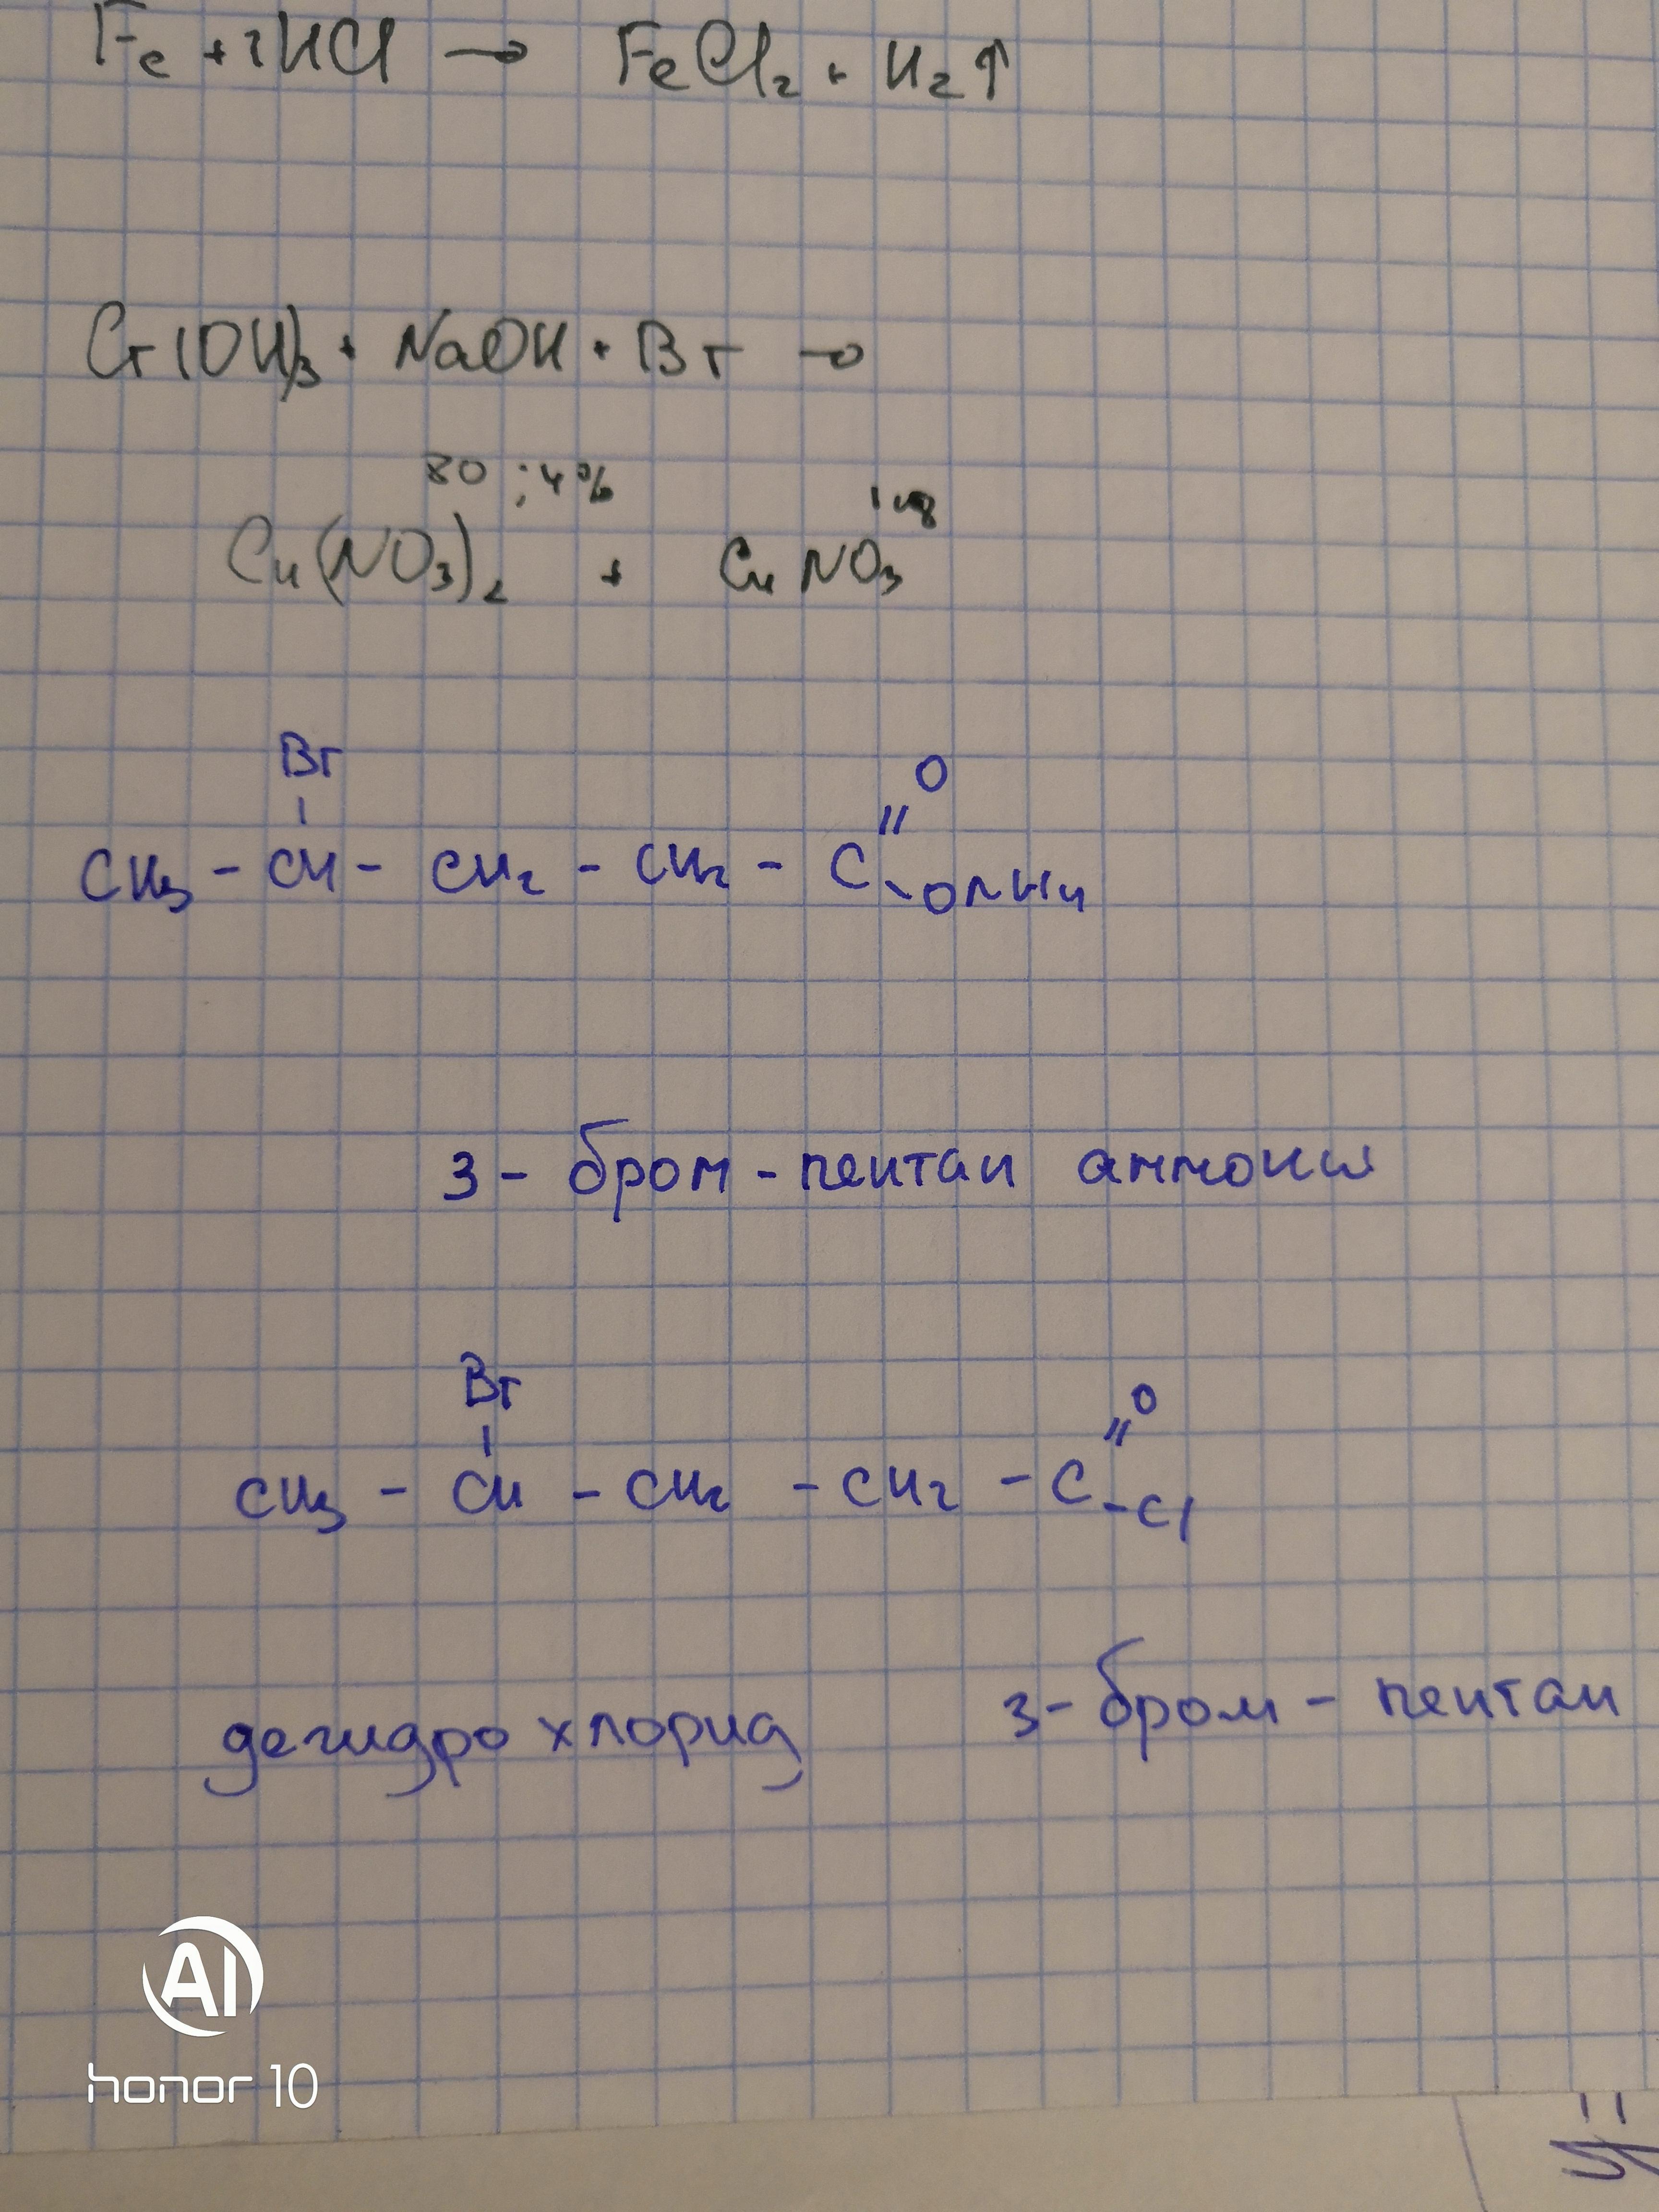 Fe + 2HCl → FeCl₂ + H₂↑
Cr(OH)₃ + NaOH + Br →
80 ; 4% 1
Cu(NO₃)₂ + Cu NO₃
Br O
| //
CH₃ - CH - CH₂ - CH₂ - C - ONH₄
3 - бром - пентан аммония
Br O
| //
CH₃ - CH - CH₂ - CH₂ - C - Cl
дегидро хлорид 3 - бром - пентан
AI
honor 10